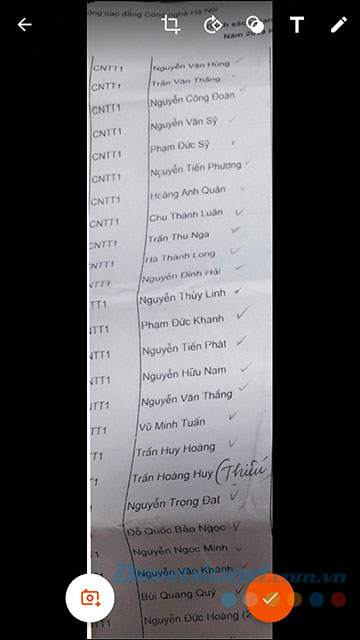 ờng cao đẳng Công nghệ Hà Nội
T
ch sác
Năm 20
CNTT1 Nguyễn Văn Hùng
CNTT1 Trần Văn Thắng
CNTT1 Nguyễn Công Đoàn
CNTT1 Nguyễn Văn Sỹ
CNTT1 Phạm Đức Sỹ
CNTT1 Nguyễn Tiến Phương
CNTT1 Hoàng Anh Quân
CNTT1 Chu Thành Luân
CNTT1 Trần Thu Nga
CNTT1 Hà Thành Long
NTT1 Nguyễn Đình Hải
TT1 Nguyễn Thùy Linh
NTT1 Phạm Đức Khanh
NTT1 Nguyễn Tiến Phát
NTT1 Nguyễn Hữu Nam
TT1 Nguyễn Văn Thắng
TT1 Vũ Minh Tuấn
TT1 Trần Huy Hoàng
TT1 Trần Hoàng Huy (Thiếu
TT1 Nguyễn Trọng Đạt
Đỗ Quốc Bảo Ngọc
1 Nguyễn Ngọc Minh
Nguyễn Văn Khánh
Download.com.vn
Bùi Quang Quý
Nguyễn Đức Hoàng (2